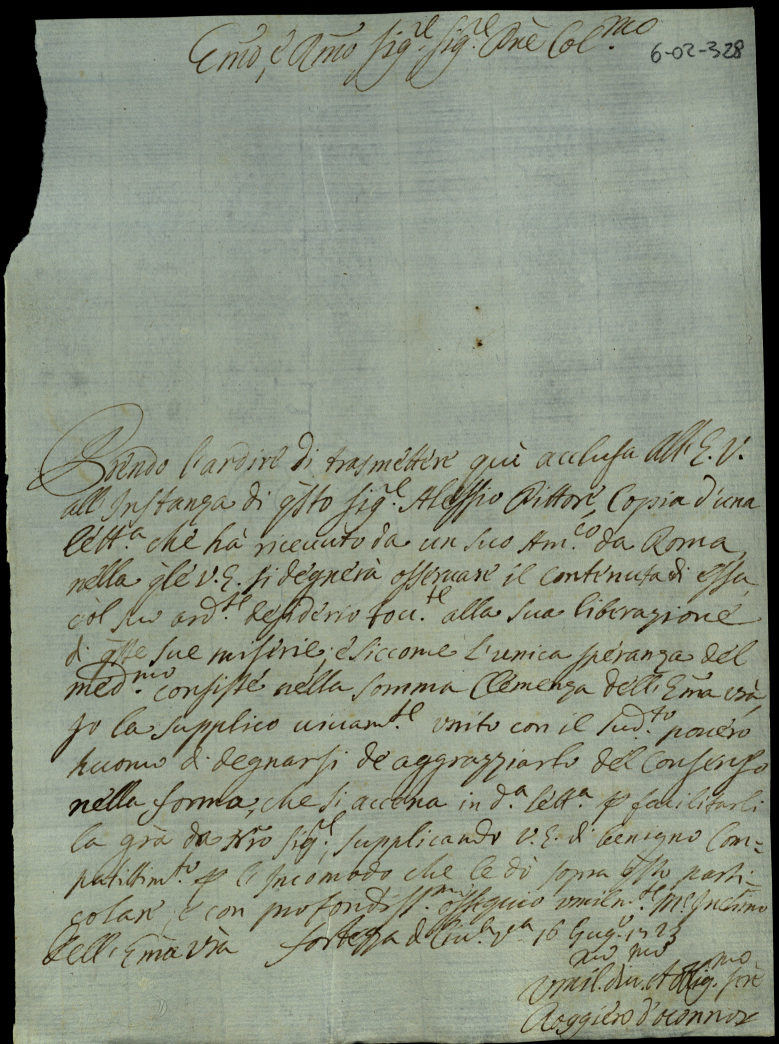 Emo, e Rmo Sig.re Sig.re Pne Col.mo
6-02-328
Prendo l'ardire di trasmettere quì acclusa all'E. V.
all'Instanza di qsto Sig.re Alessio Pittore, Copia d'una
lett.a che hà riceuuto da un suo Am.co da Roma,
nella qle V. E. si degnerà osseruare il continuta di essa,
col suo ard.te desiderio alla sua liberazione
di qste sue miserie; e siccome l'unica speranza del
med.mo consiste nella somma Clemenza dell'Ema vrã,
Io la supplico uiuam.te unito con il sud.to pouero
huomo di degnarsi de aggrazziarlo del Consenso
nella forma, che si accena in d.a lett.a p facilitarli
la grã da nro Sig.re, supplicando V. E. di benigno Com=
patim.to p l'Incomodo che le dò sopra qsto parti-
colare, e con profondiss.mo ossequio umilm.te m'Inchino
dell'Ema Vrã Fortezza di Ciu.a V.a 16 Giug.o 1723
Umil. diu. et Obblig.mo Sere
Roggiero d'oconnor